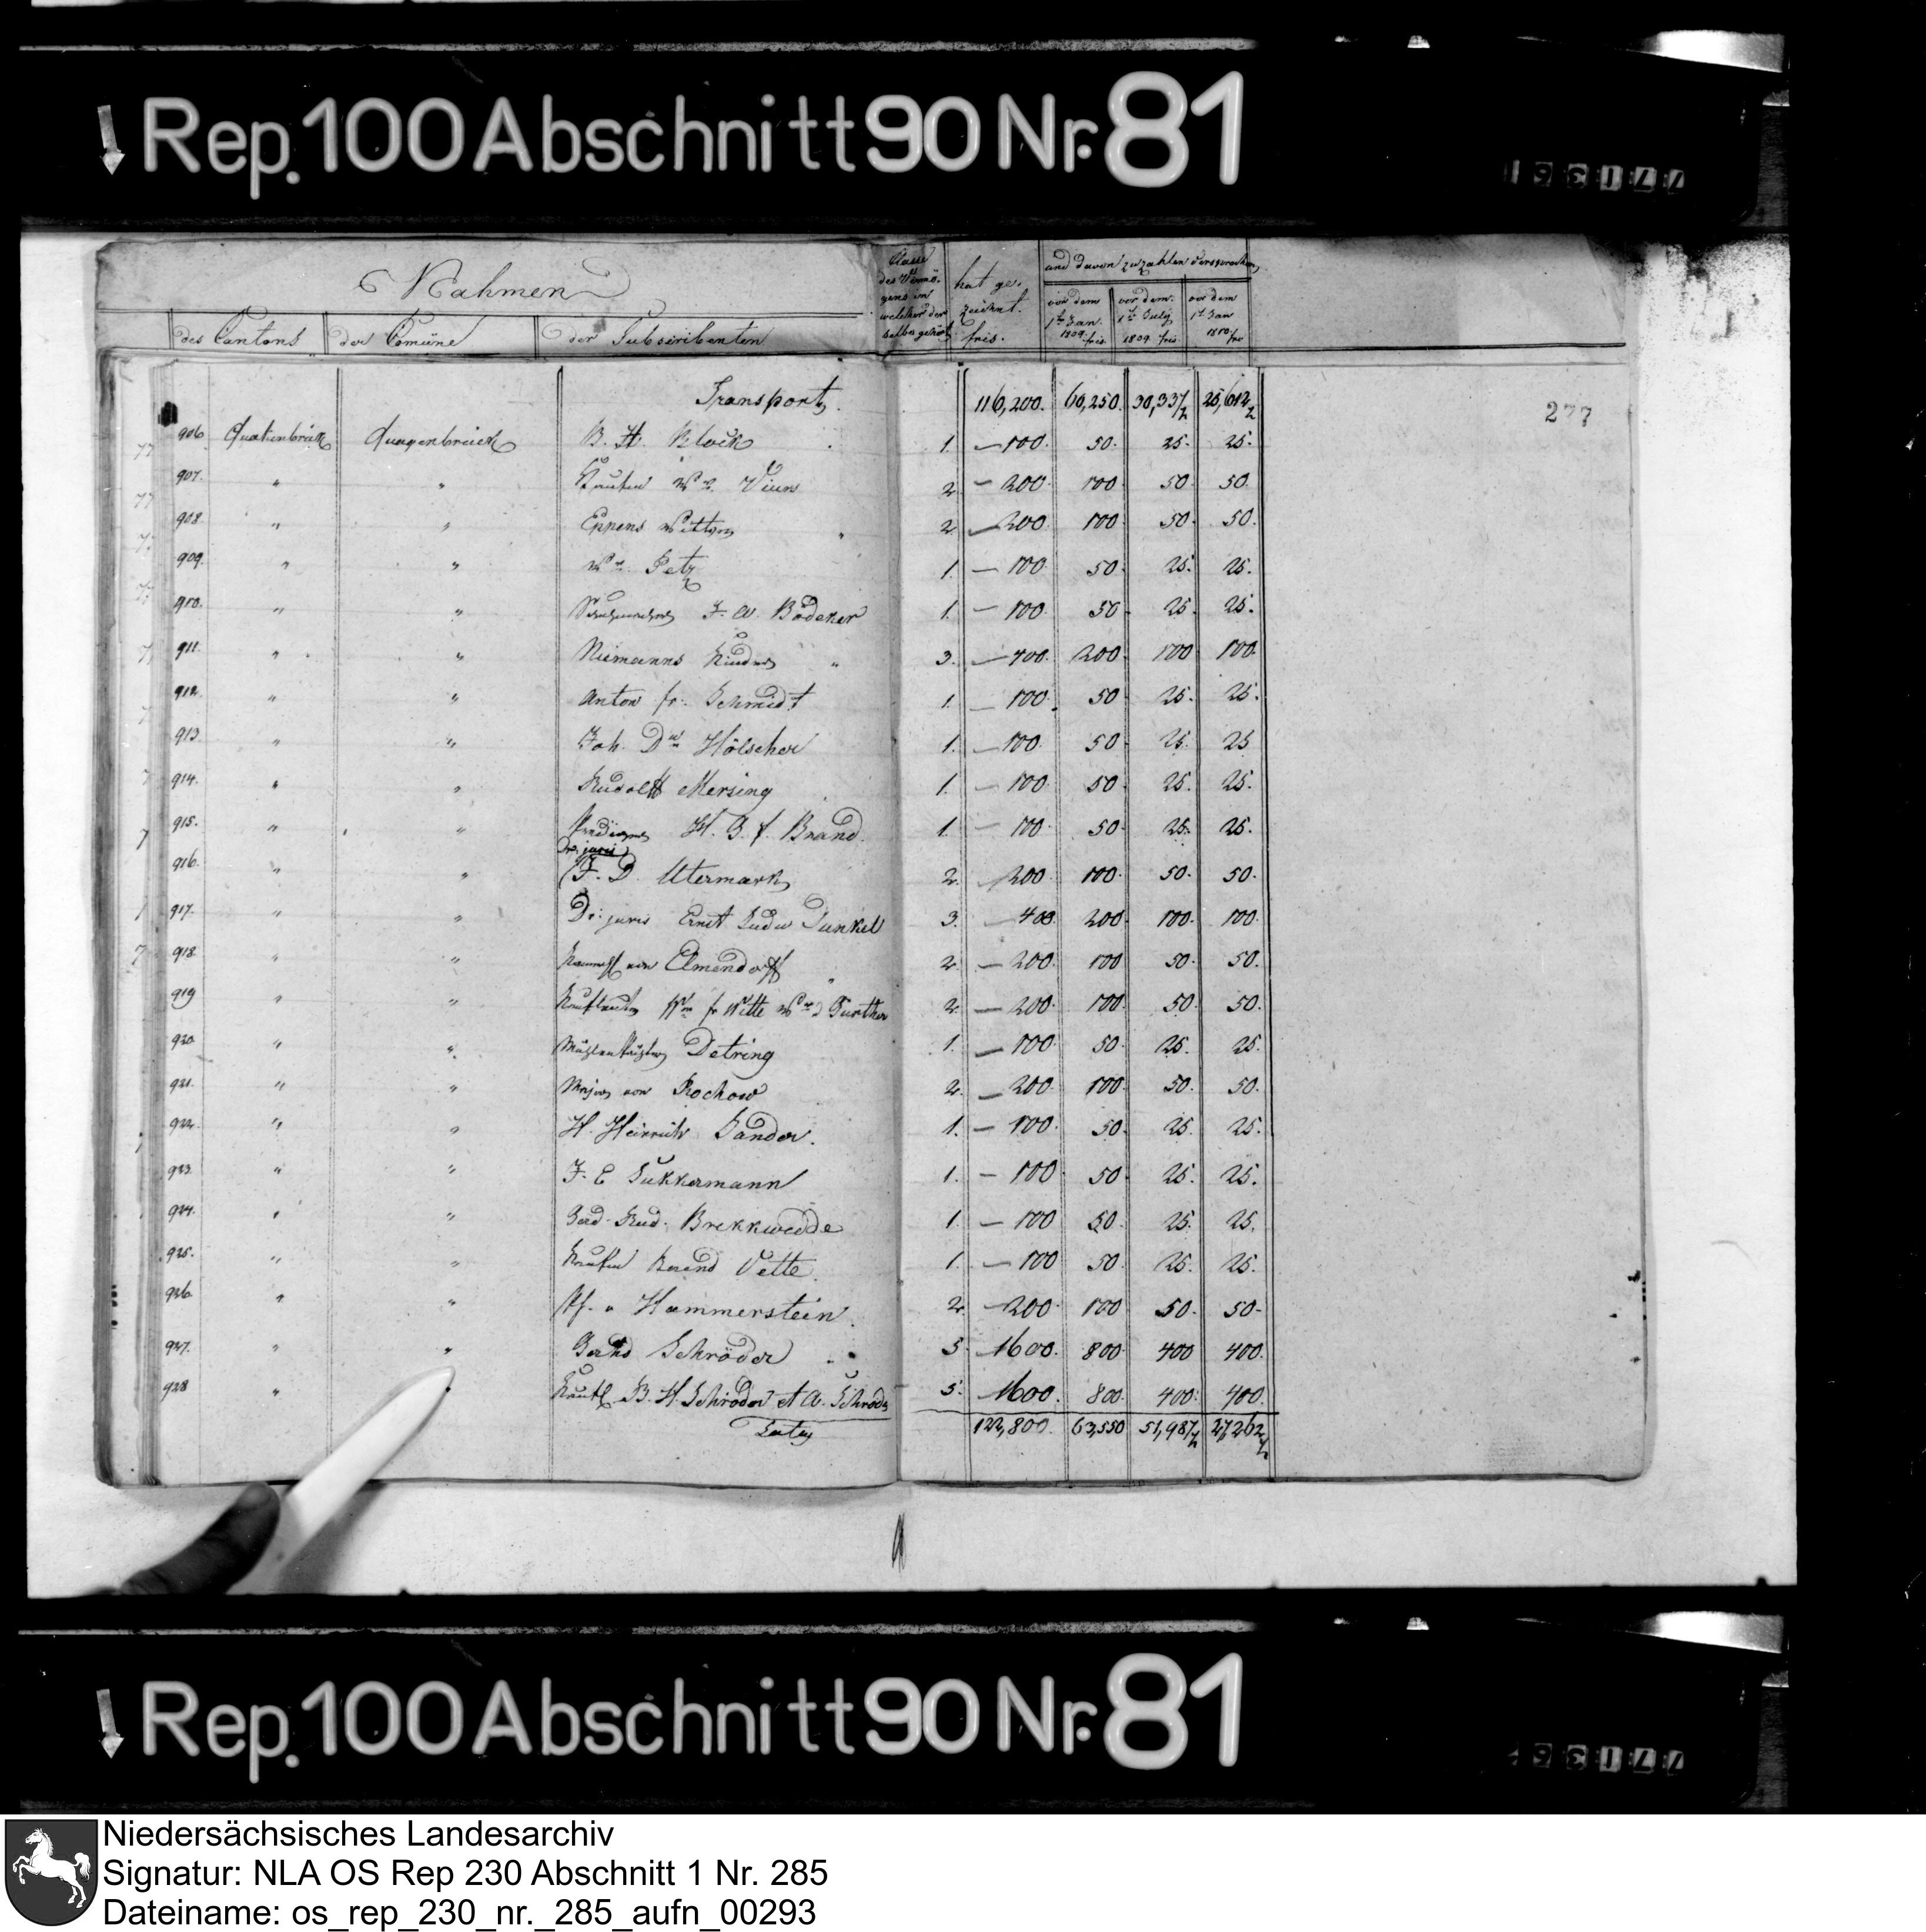 Rep. 100 Abschnitt 90 Nr. 81
Nahmen
des Cantons der Comüne der Subscribenten
Classe des Vermögens in welcher derselbe gehört
hat gezeichnet. frcs.
und davon zu zahlen versprochen
vor dem 1ten Jan. 1809. frcs.
vor dem 1ten July 1809 frcs
vor dem 1t Jan 1810 frc
277
Transport. 116,200. 60,250. 30,337½ 25,612½
906 Quakenbrück Quagenbrück B. H. Block 1. — 100. 50. 25. 25.
907. " " Kaufm Ww. 2 — 200. 100 50. 50.
908. " " Eppens Wittwe 2 — 200 100. 50. 50.
909. " " Ww. Petz 1. — 100 50. 25. 25.
910. " " F. W. Bödeker 1. — 100. 50. 25. 25.
911. " " Niemanns Kinder 3. — 400. 200. 100 100.
912. " " Anton fr. Schmidt 1. — 100. 50. 25. 25.
913. " " Joh. Dw Hölscher 1. — 100. 50. 25. 25
914. " " Rudolff Mersing 1. — 100. 50. 25. 25.
915. " " Prediger H. G. f. Brand 1. — 100. 50. 25. 25.
916. " " F. D. Utermark 2. — 200 100. 50. 50.
917. " " Dr. juris Ernst Ludw Dunkel 3. — 400. 200. 100. 100.
918. " " von Elmendorff 2. — 200. 100 50. 50.
919 " " Kaufleute Wm fr Witte Ww Gunther 2. — 200. 100. 50. 50.
920. " " Detring 1. — 100. 50. 25. 25.
921. " " Major von Rochow 2. — 200. 100. 50. 50.
922. " " H. Heinrich Sander. 1. — 100. 50. 25. 25.
923. " " F. C Sukkermann 1. — 100. 50. 25. 25.
924. " " Gerd. Rud. Brekkwedde 1. — 100 50. 25. 25.
925. " " Kaufm Berend Vette. 1. — 100 50. 25. 25.
926. " " v Hammerstein. 2. — 200. 100 50. 50.
927. " " Gerhd Schröder 5. — 1600. 800. 400 400.
928 " " Kaufl. B. H. Schröder et A. Schröder 5. — 1600. 800. 400. 400.
Latus 122,800. 63,550 31,987½ 27,262½
Rep. 100 Abschnitt 90 Nr. 81
Niedersächsisches Landesarchiv
Signatur: NLA OS Rep 230 Abschnitt 1 Nr. 285
Dateiname: os_rep_230_nr._285_aufn_00293